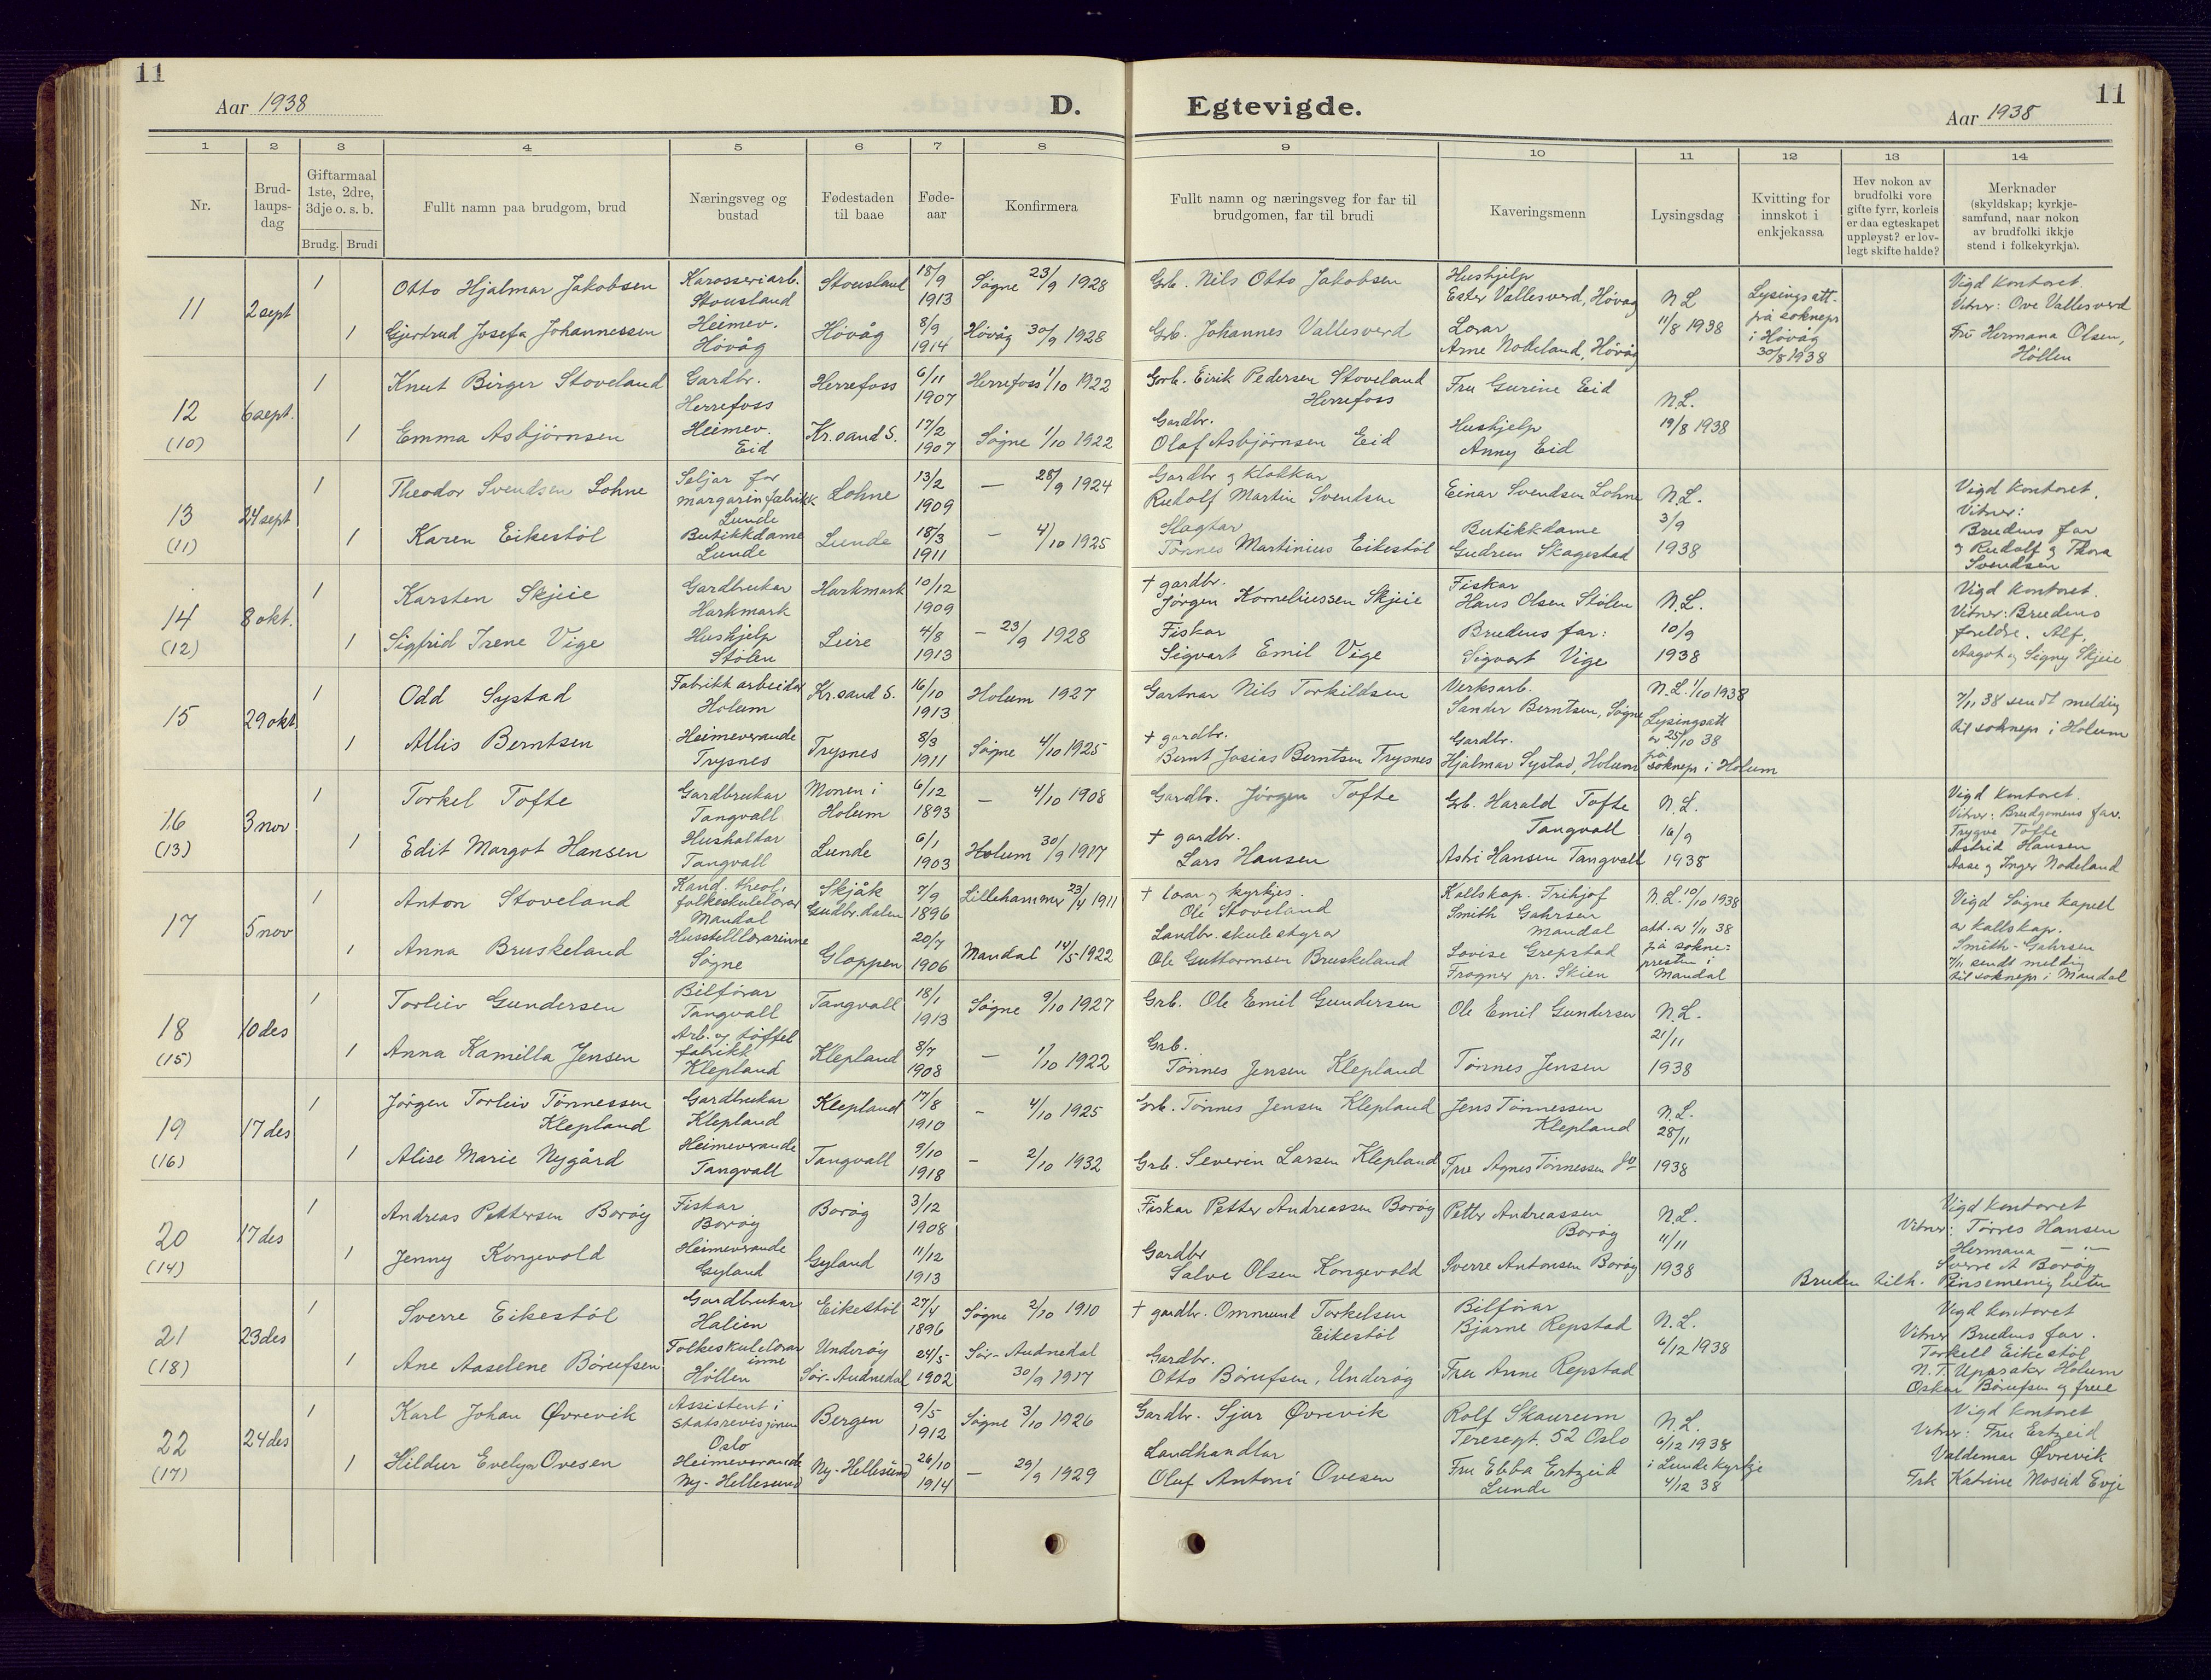 11
Aar 1938
D.
Egtevigde.
Aar 1938
11
1 2 3 4 5 6 7 8 9 10 11 12 13 14
Nr.
Brud-
laups-
dag
Giftarmaal
1ste, 2dre,
3dje o. s. b.
Brudg. Brudi
Fullt namn paa brudgom, brud
Næringsveg og
bustad
Fødestaden
til baae
Føde-
aar
Konfirmera
Fullt namn og næringsveg for far til
brudgomen, far til brudi
Kaveringsmenn
Lysingsdag
Kvitting for
innskot i
enkjekassa
Hev nokon av
brudfolki vore
gifte fyrr, korleis
er daa egteskapet
uppløyst? er lov-
legt skifte halde?
Merknader
(skyldskap; kyrkje-
samfund, naar nokon
av brudfolki ikkje
stend i folkekyrkja).
11
2 sept
1
Otto Hjalmar Jakobsen
Karosseriarb.
Stousland
Stousland
18/9
1913
Søgne 23/9 1928
Grb. Nils Otto Jakobsen
Hushjelp
Ester Vallesverd, Høvåg
N L
11/8 1938
Lysingsatt.
frå soknepr
i Høvåg
30/8 1938
Vigd kontoret.
Vitner: Ove Vallesverd
Fru Hermana Olsen,
Høllen
1
Gjertrud Josefa Johannessen
Heimev.
Høvåg
Høvåg
8/9
1914
Høvåg 30/9 1928
Grb. Johannes Vallesverd
Lærar
Arne Nodeland, Høvåg
12
(10)
6 sept.
1
Knut Birger Stoveland
Gardbr.
Herrefoss
Herrefoss
6/11
1907
Herrefoss 1/10 1922
Grb. Eirik Pedersen Stoveland
Herrefoss
Fru Gurine Eid
N.L.
19/8 1938
1
Emma Asbjørnsen
Heimev.
Eid
Kr.sand S.
17/2
1907
Søgne 1/10 1922
Gardbr.
Olaf Asbjørnsen Eid
Hushjelp
Anny Eid
13
(11)
24 sept
1
Theodor Svendsen Lohne
Seljar for
margarinfabrikk
Lunde
Lohne
13/2
1909
— 28/9 1924
Gardbr og klokkar
Rudolf Martin Svendsen
Einar Svendsen Lohne
N.L.
3/9
1938
Vigd kontoret.
Vitner:
Brudens far
og Rudolf og Thora
Svendsen
1
Karen Eikestøl
Butikkdame
Lunde
Lunde
18/3
1911
— 4/10 1925
Slagtar
Tønnes Martinius Eikestøl
Butikkdame
Gudrun Skagestad
14
(12)
8 okt.
1
Karsten Skjeie
Gardbrukar
Harkmark
Harkmark
10/12
1909
+ gardbr.
Jørgen Korneliussen Skjeie
Fiskar
Hans Olsen Stølen
N.L.
10/9
1938
Vigd kontoret.
Vitner: Brudens
foreldre. Alf,
Aagot og Signy Skjeie
1
Sigfrid Irene Vige
Hushjelp
Stølen
Leire
4/8
1913
— 23/9 1928
Fiskar
Sigvart Emil Vige
Brudens far:
Sigvart Vige
15
29 okt
1
Odd Systad
Fabrikkarbeidar
Holum
Kr.sand S.
16/10
1913
Holum 1927
Gartnar Nils Torkildsen
Verksarb.
Sander Berntsen, Søgne
N.L. 1/10 1938
Lysingsatt
av 25/10 38
frå
soknepr i Holum
7/11 38 sendt melding
til soknepr i Holum
1
Allis Berntsen
Heimeverande
Trysnes
Trysnes
8/3
1911
Søgne 4/10 1925
+ gardbr.
Bernt Josias Berntsen Trysnes
Gardbr.
Hjalmar Systad, Holum
16
(13)
3 nov
1
Torkel Tofte
Gardbrukar
Tangvall
Monen i
Holum
6/12
1893
— 4/10 1908
Gardbr. Jørgen Tofte
Grb. Harald Tofte
Tangvall
N.L.
16/9
1938
Vigd kontoret.
Vitner: Brudgomens far.
Trygve Tofte
Astrid Hansen
Aase og Inger Nodeland
1
Edit Margot Hansen
Hushaldar
Tangvall
Lunde
6/1
1903
Holum 30/9 1917
+ gardbr.
Lars Hansen
Astri Hansen Tangvall
17
5 nov
1
Anton Stoveland
Kand. theol.,
folkeskulelærar
Mandal
Skjåk
Gudbr.dalen
7/9
1896
Lillehammer 23/4 1911
+ lærar og kyrkjes.
Ole Stoveland
Kallskap. Trihjof
Smith Gahrsen
Mandal
N.L. 10/10 1938
att. av 1/11 38
frå sokne-
presten i
Mandal
Vigd Søgne kapell
av kallskap.
Smith-Gahrsen
7/11 sendt melding
til soknepr i Mandal
1
Anna Bruskeland
Husstellærarinne
Søgne
Gloppen
20/7
1906
Mandal 14/5 1922
Landbr.skulestyrar
Ole Guttormsen Bruskeland
Lovise Grepstad
Frogner pr. Skien
18
(15)
10 des
1
Torleiv Gundersen
Bilførar
Tangvall
Tangvall
18/1
1913
Søgne 9/10 1927
Grb. Ole Emil Gundersen
Ole Emil Gundersen
N.L.
21/11
1938
1
Anna Kamilla Jensen
Arb. og tøffel
fabrikk
Klepland
Klepland
8/7
1908
— 1/10 1922
Grb.
Tønnes Jensen Klepland
Tønnes Jensen
19
(16)
17 des
1
Jørgen Torleiv Tønnessen
Klepland
Gardbrukar
Klepland
Klepland
17/8
1910
— 4/10 1925
Grb. Tønnes Jensen Klepland
Jens Tønnessen
Klepland
N.L.
28/11
1938
1
Alise Marie Nygård
Heimeverande
Tangvall
Tangvall
9/10
1918
— 2/10 1932
Grb. Severin Larsen Klepland
Fru Agnes Tønnessen do
20
(14)
17 des
1
Andreas Pettersen Borøy
Fiskar
Borøy
Borøy
3/12
1908
Fiskar Petter Andreassen Borøy
Petter Andreassen
Borøy
N.L.
11/11
1938
Vigd kontoret
Vitner: Tørres Hansen
Hermana — " —
Sverre A Borøy
Bruden tilh. Pinsemenigheten
1
Jenny Kongevold
Heimeverande
Gyland
Gyland
11/12
1913
Gardbr
Salve Olsen Kongevold
Sverre Antonsen Borøy
21
(18)
23 des
1
Sverre Eikestøl
Gardbrukar
Halien
Eikestøl
27/4
1896
Søgne 2/10 1910
+ gardbr. Ommund Torkelsen
Eikestøl
Bilførar
Bjarne Repstad
N.L.
6/12 1938
Vigd kontoret
Vitner Brudens far.
Torkell Eikestøl
N. T. Uppsaker Holum
Oskar Børufsen og frue
1
Ane Aaselene Børufsen
Folkeskulelærar
inne
Høllen
Underøy
Sør-Audnedal
24/5
1902
Sør-Audnedal
30/9 1917
Gardbr.
Otto Børufsen, Underøy
Fru Anne Repstad
22
(17)
24 des
1
Karl Johan Øvrevik
Assistent i
statsrevisjonen
Oslo
Bergen
9/5
1912
Søgne 3/10 1926
Gardbr. Sjur Øvrevik
Rolf Skaureum
Teresegt. 52 Oslo
N.L.
6/12 1938
i Lunde kyrkje
4/12 38
Vigd kontoret
Vitner: Fru Ertzeid
Valdemar Øvrevik
Frk Katrine Moseid Evje
1
Hildur Evelyn Ovesen
Heimeverande
Ny-Hellesund
Ny-Hellesund
26/10
1914
— 29/9 1929
Landhandlar
Oluf Antoni Ovesen
Fru Ebba Ertzeid
Lunde